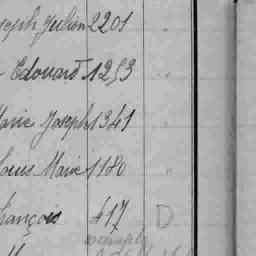 Joseph Julien 2201
Edouard 1253
Marie Joseph 1341
Louis Marie 1180
François 417 D